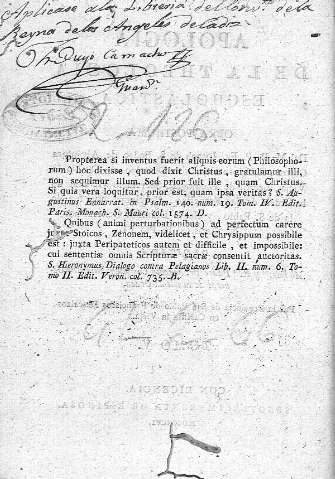 Aplicase a la Libreria del Conv.to de la
Reyna de los Angeles de
Fr. Diego Camacho
Guard.n
Propterea si inventus fuerit aliquis eorum (Philosopho-
rum) hoc dixisse, quod dixit Christus, gratulamur illi,
non sequimur illum. Sed prior fuit ille, quam Christus.
Si quis vera loquitur, prior est, quam ipsa veritas? S. Au-
gustinus Enarrat. in Psalm. 140. num. 19. Tom. IV. Edit.
Paris. Monach. S. Mauri col. 1574. D.
Quibus (animi perturbationibus) ad perfectum carere
juxta Stoicos, Zenonem, videlicet, et Chrysippum possibile
est: juxta Peripateticos autem et difficile, et impossibile:
cui sententiæ omnis Scripturæ sacræ consentit auctoritas.
S. Hieronymus, Dialogo contra Pelagianos Lib. II. num. 6. To-
mo II. Edit. Veron. col. 735. B.